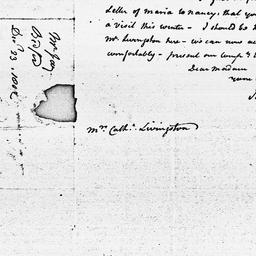 Letter of Maria to Nancy, that you
a visit this winter – I should be h
Mr Livingston here – we can now ac
comfortably – present our comp.ts
Dear Madam
Yours
Mrs Cath.e Livingston
Decr 23, 1802